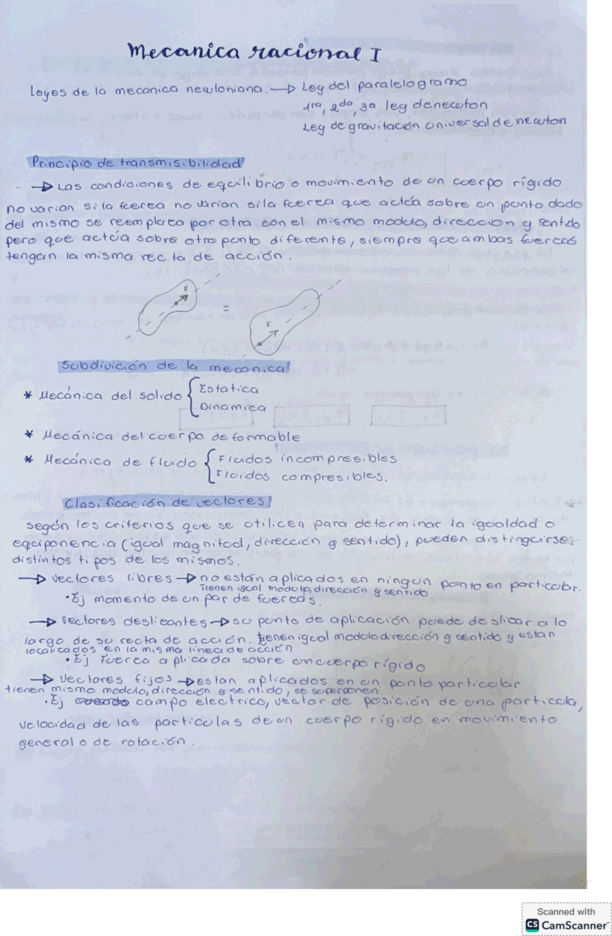 Mecanica racional I
Leyes de la mecanica newtoniana. → Ley del paralelogramo
1ra, 2do, 3a ley de newton
Ley de gravitación universal de newton
Principio de transmisibilidad
→ Las condiciones de equilibrio o movimiento de un cuerpo rígido
no varian si la fuerza no varían si la fuerza que actúa sobre un punto dado
del mismo se reemplaza por otra con el mismo modulo, dirección y sentido
pero que actúa sobre otro punto diferente, siempre que ambas fuerzas
tengan la misma recta de acción.
F = F
Subdivición de la mecanica
* Mecánica del solido { Estatica
Dinamica
* Mecánica del cuerpo deformable
* Mecánica de fluido { Fluidos incompresibles
Fluidos compresibles.
Clasificación de vectores
según los criterios que se utilicen para determinar la igualdad o
equiponencia (igual magnitud, dirección y sentido), pueden distinguirse
distintos tipos de los mismos.
→ Vectores libres → no están aplicados en ningun punto en particular.
Tienen igual modulo, dirección y sentido
• Ej momento de un par de fuerzas.
→ Vectores deslizantes → su punto de aplicación puede deslizar a lo
largo de su recta de acción. tienen igual modulo dirección y sentido y estan
localizados en la misma línea de acción
• Ej fuerza aplicada sobre un cuerpo rígido
→ Vectores fijos → estan aplicados en un punto particular
tienen mismo modulo, dirección y sentido, se superponen.
• Ej campo electrico, vector de posición de una particula,
velocidad de las particulas de un cuerpo rígido en movimiento
general o de rotación.
Scanned with
CS CamScanner